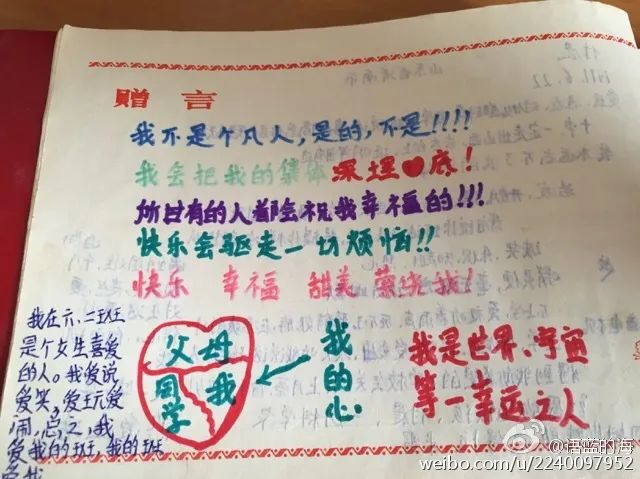 赠言
我不是个凡人,是的,不是!!!!
我会把我的集体深埋❤底!
所有的人都会祝我幸福的!!!
快乐会驱走一切烦恼!!
快乐 幸福 甜美 萦绕我!
我在六、二班班
是个女生喜爱
的人。我爱说
爱笑,爱玩爱
闹,总之,我
爱我的班,我的班
爱我
父母
同学
我
我的心
我是世界、宇宙
等一幸运之人
@语蓝的海
weibo.com/u/2240097952